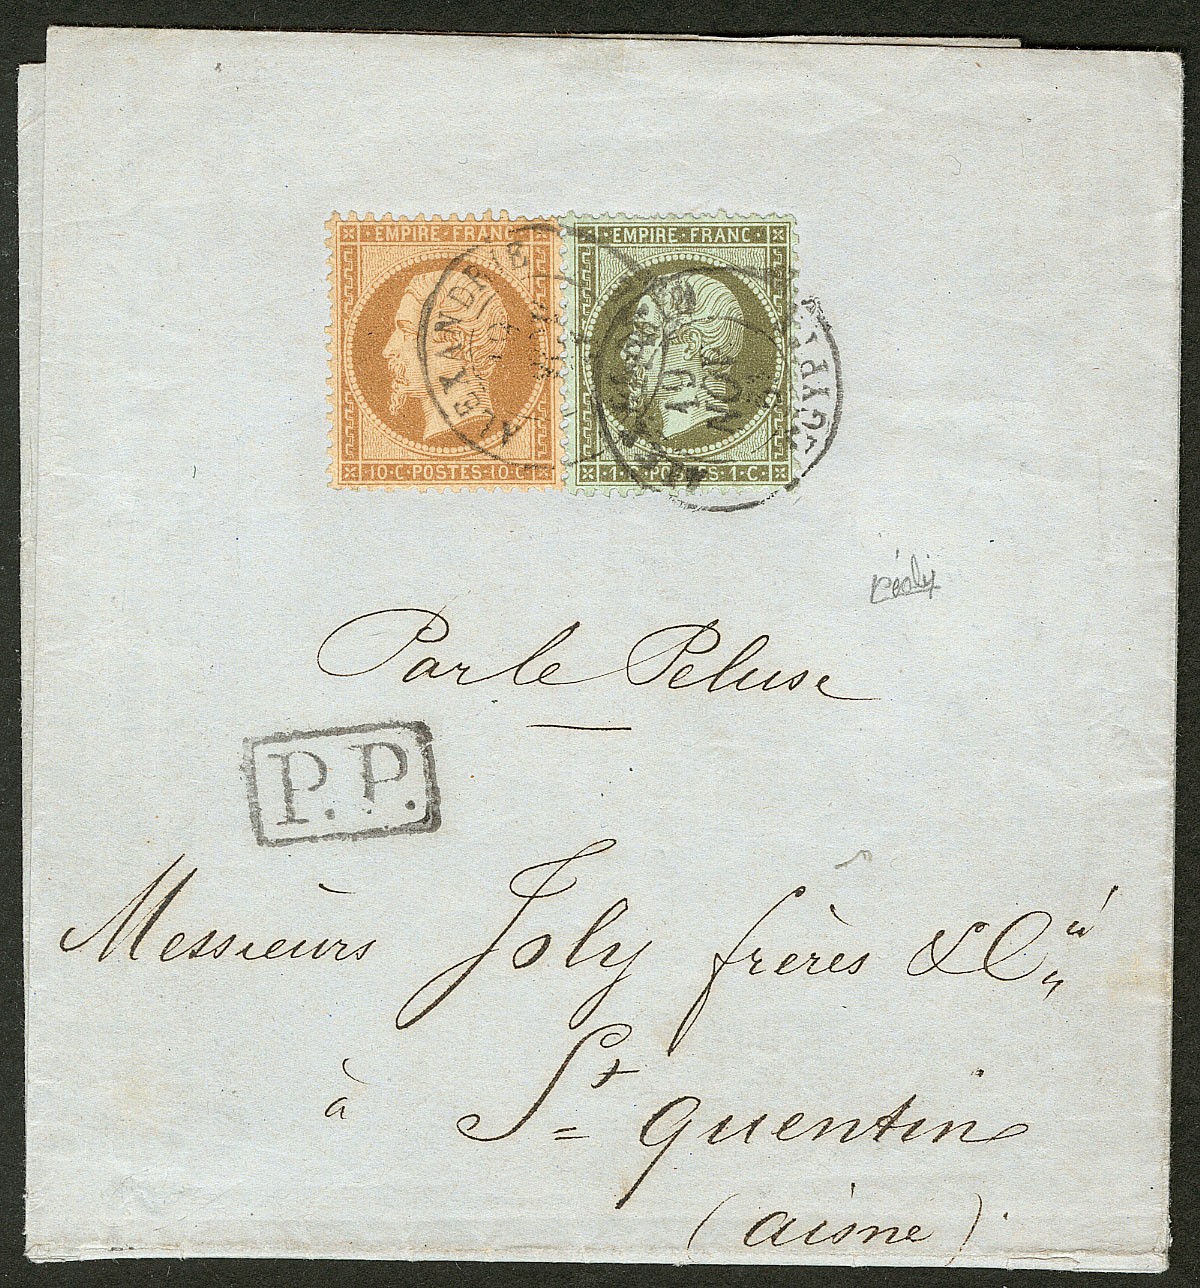 EMPIRE·FRANC·
10·C·POSTES·10·C
EMPIRE·FRANC·
·1·C·POSTES·1·C·
ALEXANDRIE
19
NOV
Par le Peluse
P.P.
Messieurs Joly frères & Cie
à St Quentin
(aisne)